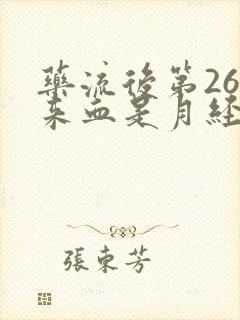 藥流後第26
來血是月經
張東芳